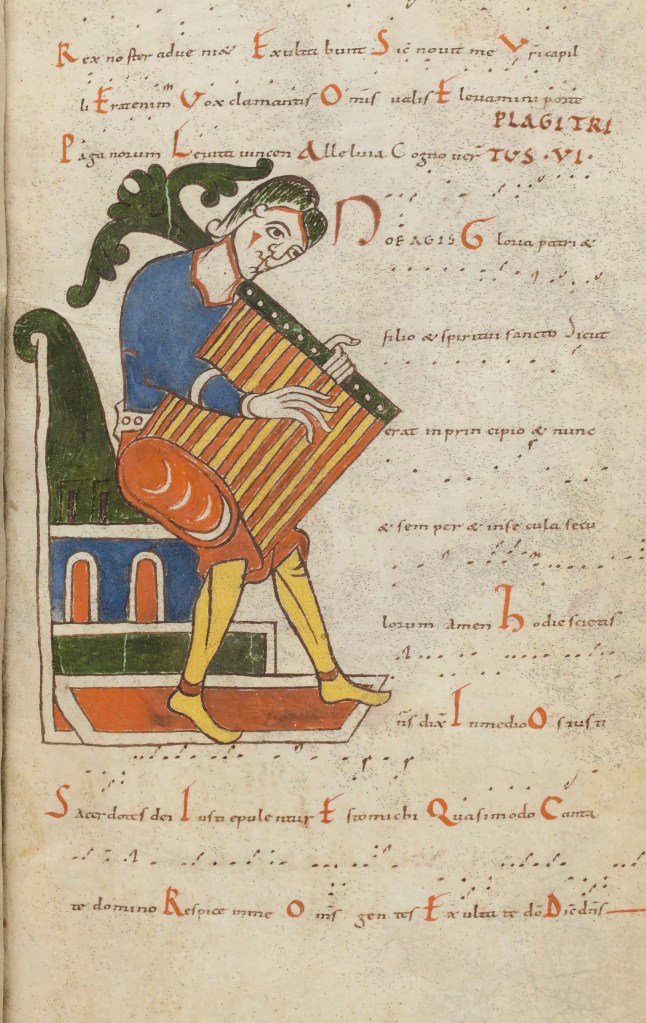 Rex noster adveniæ Exultabunt Sic̄ novit me Vr̄i capil
li Eratenim Vox clamantis Om̄is vallis Elevamini porte
PLAGI TRI
Paganorum Levita vincen Alleluia Cognover TUS · VI ·
NOEAGIS Gloria patri &
filio & spiritui sancto Sicut
erat in prin cipio & nunc
& sem per & inse cula secu
lorum amen hodie scietis
dix̄ Inmedio Os iusti
Sacerdotes dei Iusti epulentur Estomichi Quasimodo Canta
te domino Respice inme Om̄s gentes Exultate do᷃ Dic̄ dn̄s